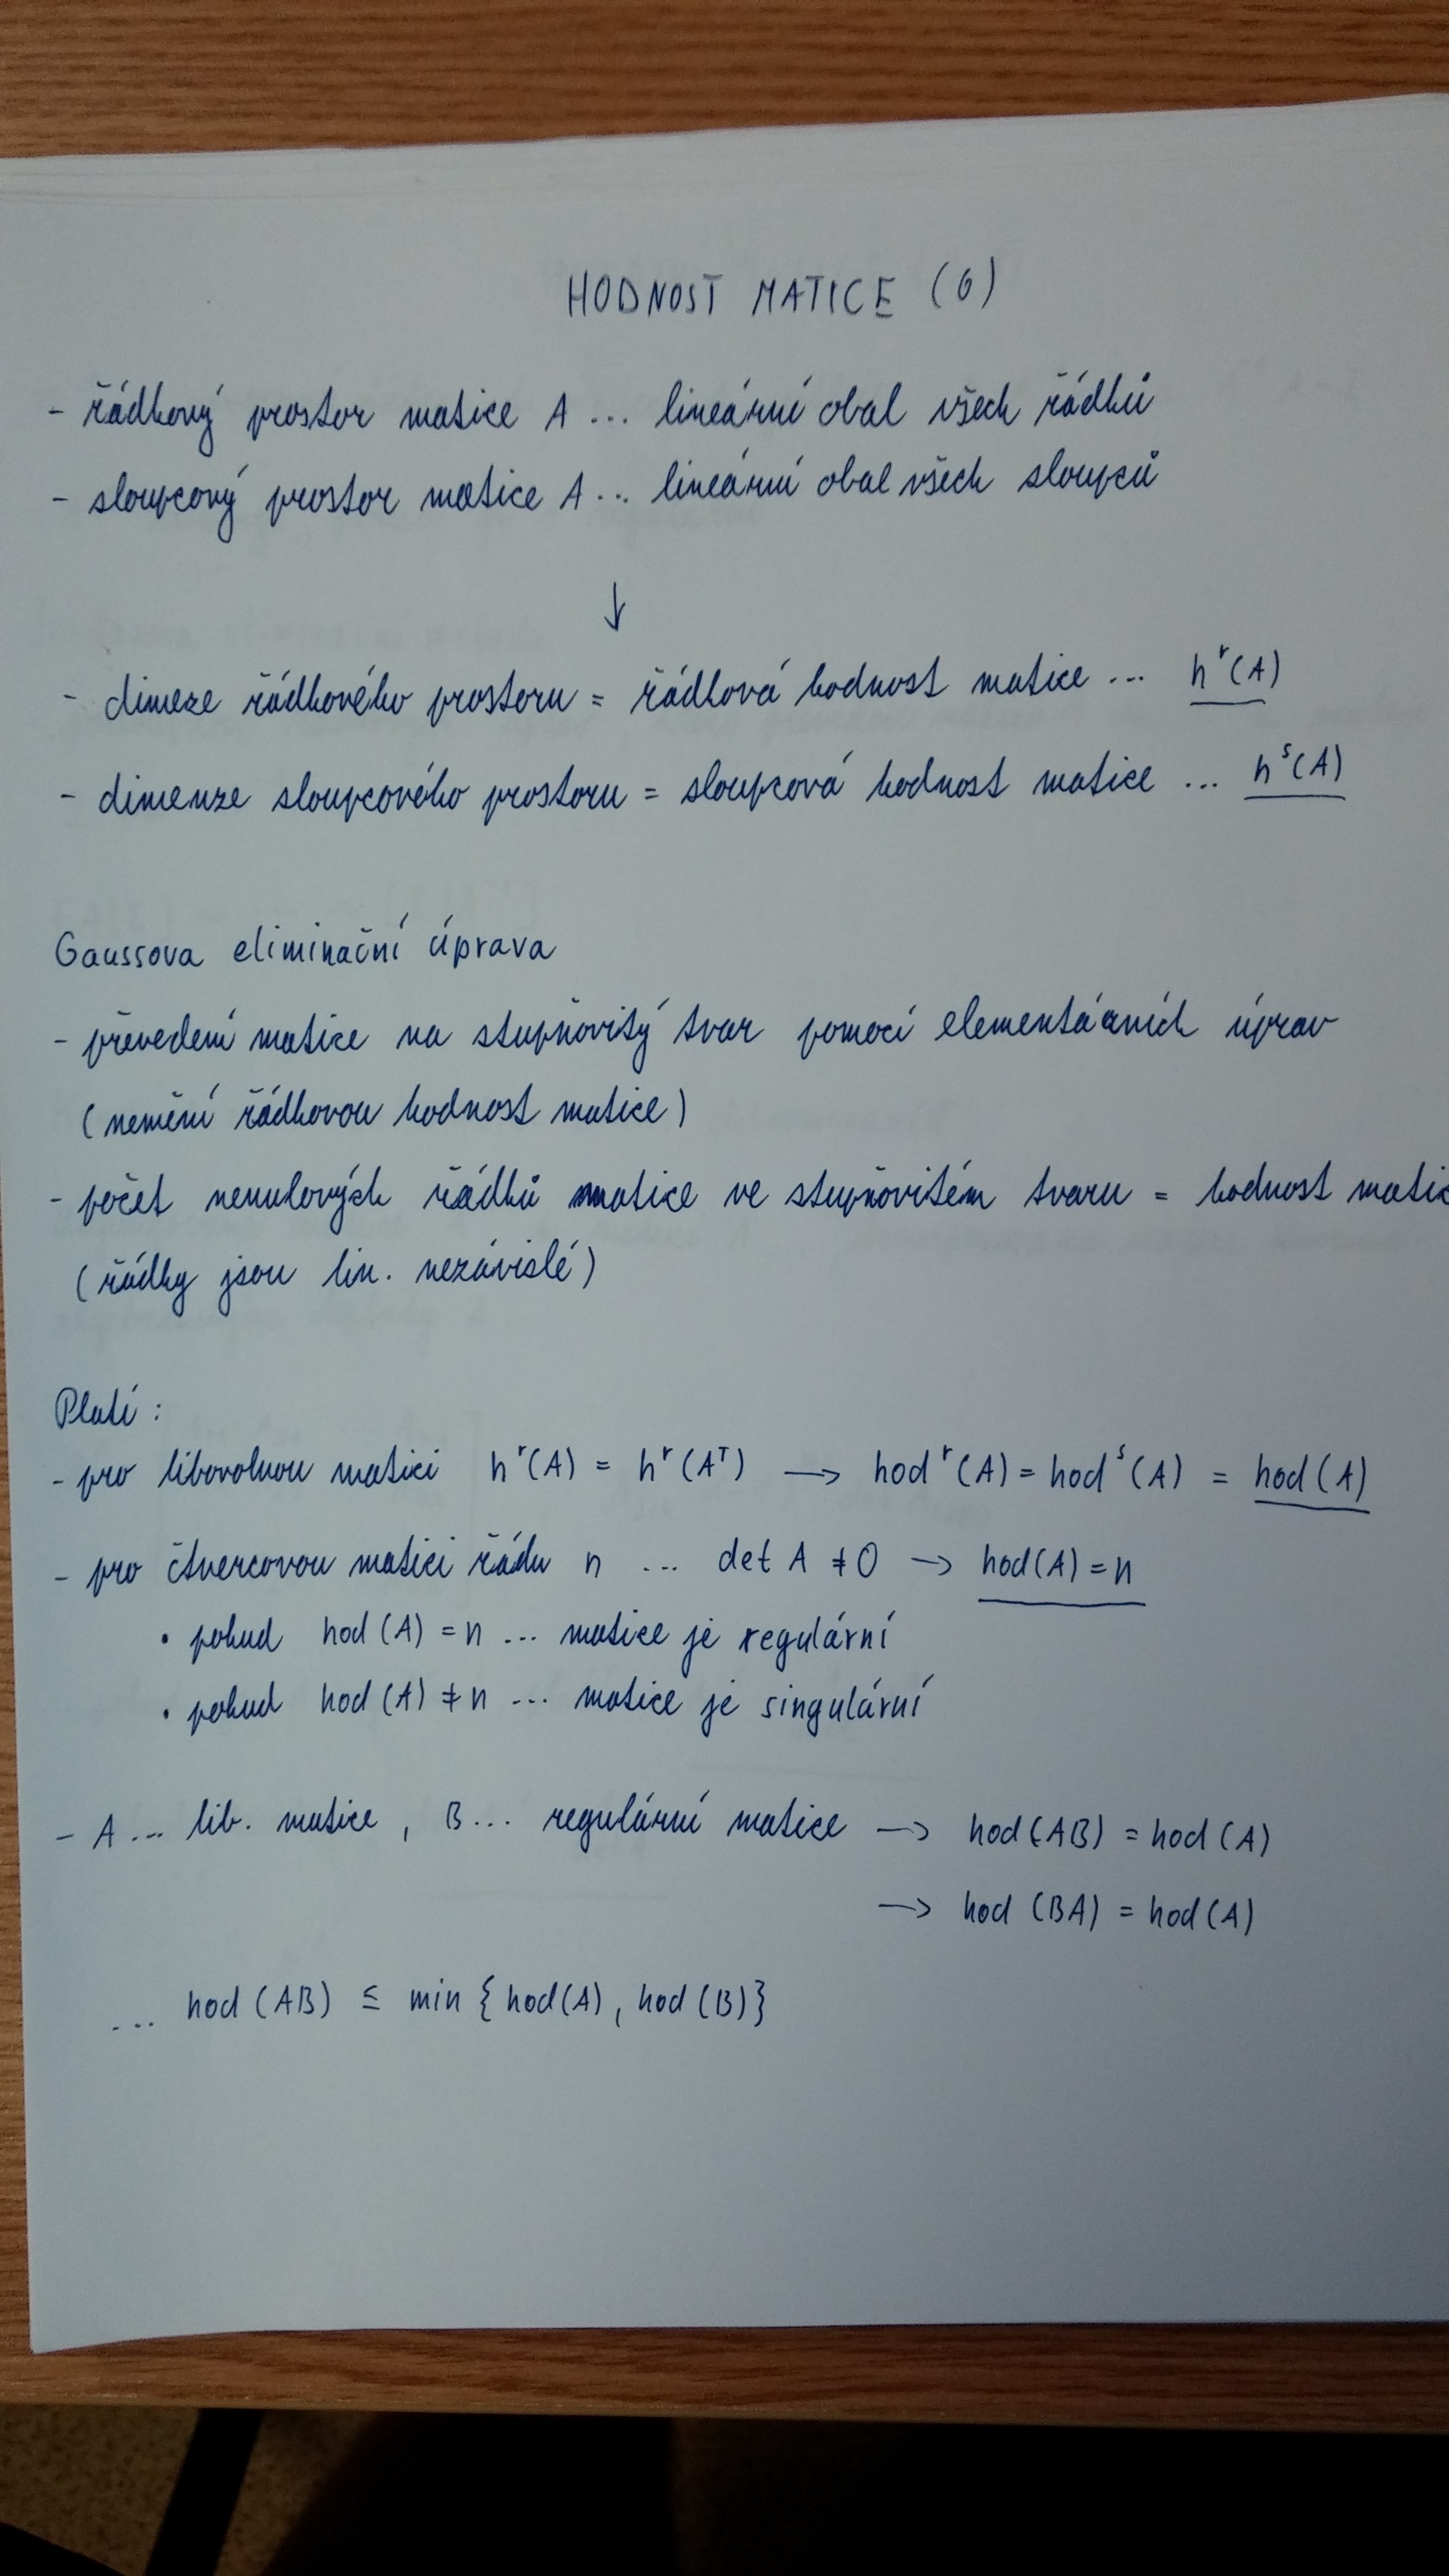 HODNOST MATICE (6)
- řádkový prostor matice A ... lineární obal všech řádků
- sloupcový prostor matice A ... lineární obal všech sloupců
↓
- dimeze řádkového prostoru = řádková hodnost matice ... hʳ(A)
- dimenze sloupcového prostoru = sloupcová hodnost matice ... hˢ(A)
Gaussova eliminační úprava
- převedení matice na stupňovitý tvar pomocí elementárních úprav
(nemění řádkovou hodnost matice)
- počet nenulových řádků matice ve stupňovitém tvaru = hodnost matic
(řádky jsou lin. nezávislé)
Platí :
- pro libovolnou matici hʳ(A) = hʳ(Aᵀ) → hodʳ(A) = hodˢ(A) = hod(A)
- pro čtvercovou matici řádu n ... det A ≠ 0 → hod(A) = n
• pokud hod(A) = n ... matice je regulární
• pokud hod(A) ≠ n ... matice je singulární
- A ... lib. matice , B ... regulární matice → hod(AB) = hod(A)
→ hod(BA) = hod(A)
... hod(AB) ≤ min {hod(A), hod(B)}